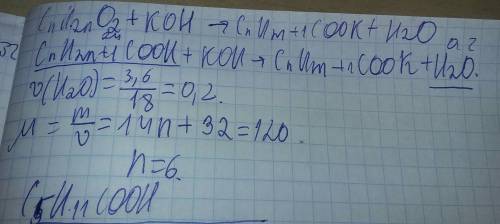 CnH2nO2 + KOH → CnHm+1COOK + H2O
0,2
CnH2n+1COOH + KOH → CnHm+1COOK + H2O.
ν(H2O) = 3,6/18 = 0,2.
M = m/ν = 14n + 32 = 120.
n = 6.
C5H11COOH